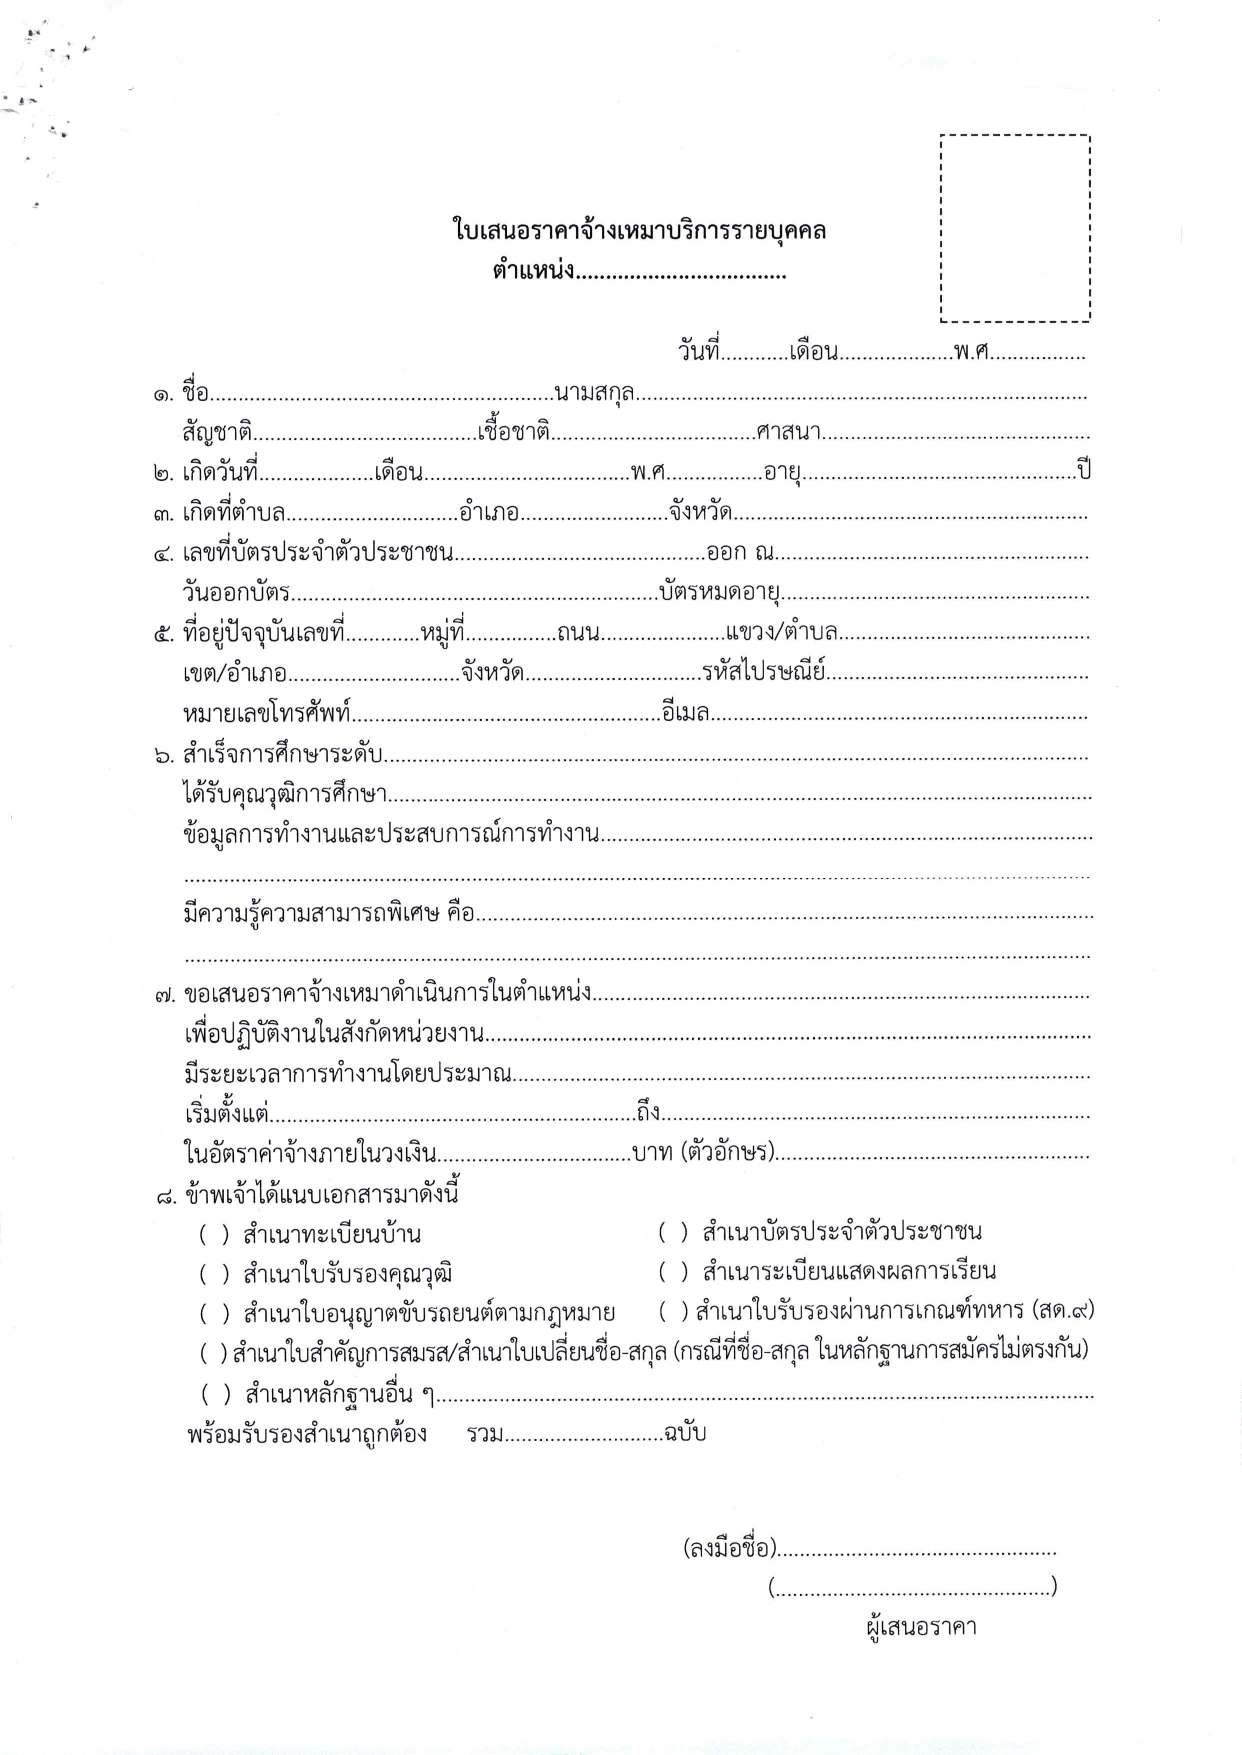 ใบเสนอราคาจ้างเหมาบริการรายบุคคล
ตำแหน่ง..................................
วันที่............เดือน....................พ.ศ.................
๑. ชื่อ............................................................นามสกุล...............................................................................
สัญชาติ.......................................เชื้อชาติ....................................ศาสนา...............................................
๒. เกิดวันที่....................เดือน....................................พ.ศ.................อายุ................................................ปี
๓. เกิดที่ตำบล..............................อำเภอ..........................จังหวัด..............................................................
๔. เลขที่บัตรประจำตัวประชาชน............................................ออก ณ.......................................................
วันออกบัตร.................................................................บัตรหมดอายุ......................................................
๕. ที่อยู่ปัจจุบันเลขที่.............หมู่ที่................ถนน......................แขวง/ตำบล............................................
เขต/อำเภอ..............................จังหวัด...............................รหัสไปรษณีย์..............................................
หมายเลขโทรศัพท์......................................................อีเมล..................................................................
๖. สำเร็จการศึกษาระดับ............................................................................................................................
ได้รับคุณวุฒิการศึกษา...........................................................................................................................
ข้อมูลการทำงานและประสบการณ์การทำงาน......................................................................................
................................................................................................................................................................
มีความรู้ความสามารถพิเศษ คือ............................................................................................................
................................................................................................................................................................
๗. ขอเสนอราคาจ้างเหมาดำเนินการในตำแหน่ง.......................................................................................
เพื่อปฏิบัติงานในสังกัดหน่วยงาน..........................................................................................................
มีระยะเวลาการทำงานโดยประมาณ.....................................................................................................
เริ่มตั้งแต่................................................................ถึง...........................................................................
ในอัตราค่าจ้างภายในวงเงิน..................................บาท (ตัวอักษร).......................................................
๘. ข้าพเจ้าได้แนบเอกสารมาดังนี้
( ) สำเนาทะเบียนบ้าน ( ) สำเนาบัตรประจำตัวประชาชน
( ) สำเนาใบรับรองคุณวุฒิ ( ) สำเนาระเบียนแสดงผลการเรียน
( ) สำเนาใบอนุญาตขับรถยนต์ตามกฎหมาย ( ) สำเนาใบรับรองผ่านการเกณฑ์ทหาร (สด.๙)
( ) สำเนาใบสำคัญการสมรส/สำเนาใบเปลี่ยนชื่อ-สกุล (กรณีที่ชื่อ-สกุล ในหลักฐานการสมัครไม่ตรงกัน)
( ) สำเนาหลักฐานอื่น ๆ....................................................................................................................
พร้อมรับรองสำเนาถูกต้อง รวม............................ฉบับ
(ลงมือชื่อ).................................................
(................................................)
ผู้เสนอราคา